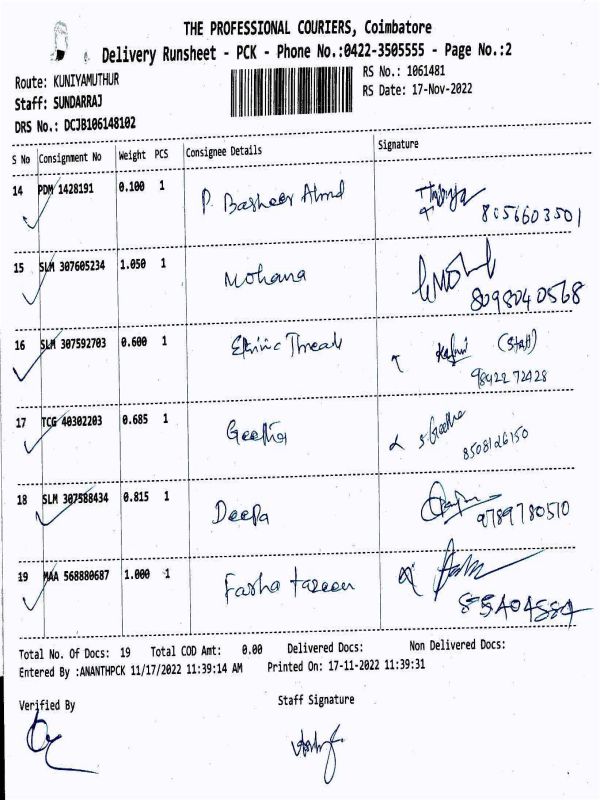 THE PROFESSIONAL COURIERS, Coimbatore
Delivery Runsheet - PCK - Phone No.:0422-3505555 - Page No.:2
Route: KUNIYAMUTHUR
RS No.: 1061481
Staff: SUNDARRAJ
RS Date: 17-Nov-2022
DRS No.: DCJB106148102
S No Consignment No Weight PCS Consignee Details Signature
14 PDM 1428191 0.100 1 P. Basheer Ahmd
8056603501
15 SLM 307605234 1.050 1 Mohana
8098040568
16 SLM 307592703 0.600 1 Ethnic Threads (Staff)
98422 72428
17 TCG 40302203 0.685 1 Geetha S Geetha
8508126150
18 SLM 307588434 0.815 1 Deepa
9789780510
19 MAA 568880687 1.000 1 Farha tazeen
Total No. Of Docs: 19 Total COD Amt: 0.00 Delivered Docs: Non Delivered Docs:
Entered By :ANANTHPCK 11/17/2022 11:39:14 AM Printed On: 17-11-2022 11:39:31
Verified By Staff Signature